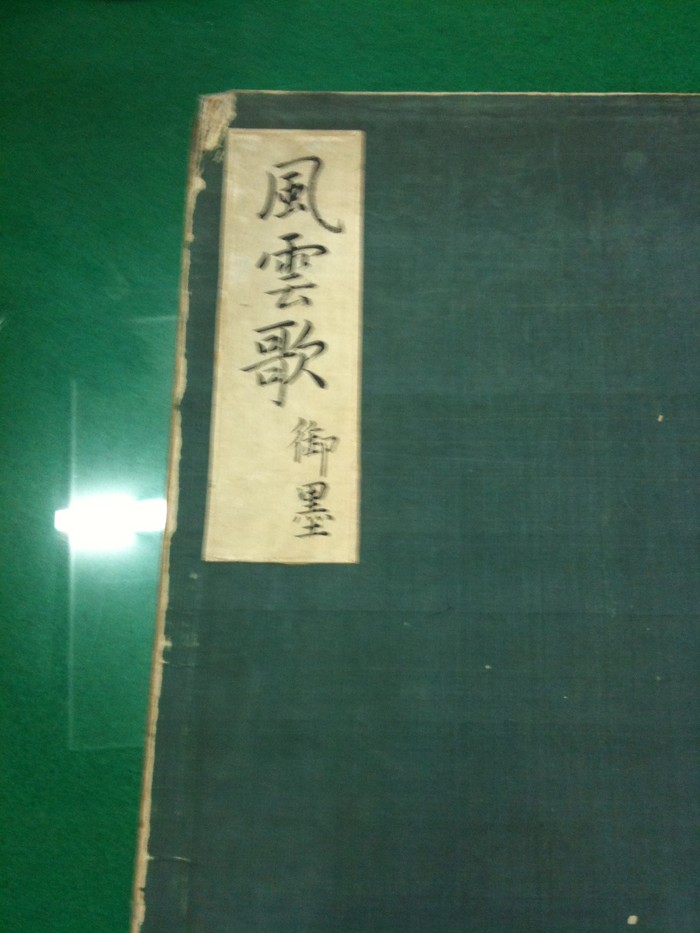 風雲歌御墨